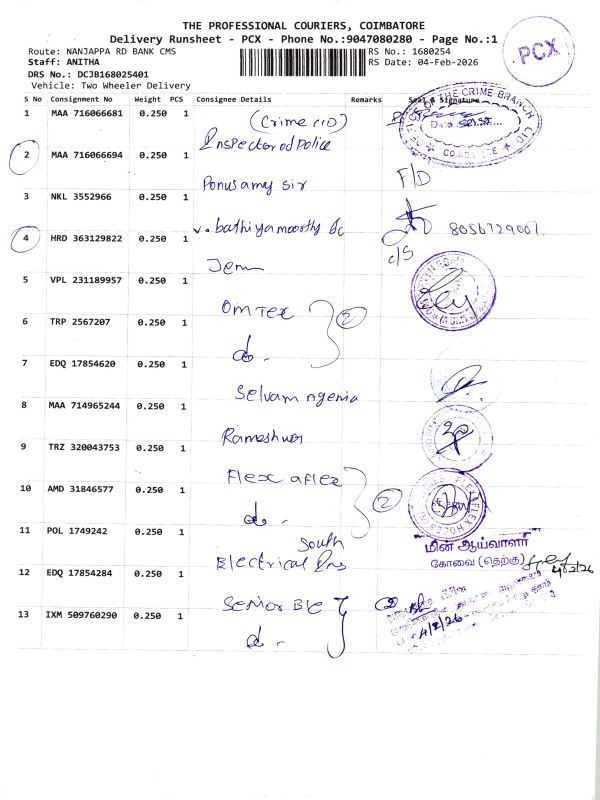 THE PROFESSIONAL COURIERS, COIMBATORE
Delivery Runsheet - PCX - Phone No.:9047080280 - Page No.:1
PCX
Route: NANJAPPA RD BANK CMS
RS No.: 1680254
Staff: ANITHA
RS Date: 04-Feb-2026
DRS No.: DCJB168025401
Vehicle: Two Wheeler Delivery
S No Consignment No Weight PCS Consignee Details Remarks Seal & Signature
1 MAA 716066681 0.250 1 (Crime CID)
Inspector of Police
CRIME BRANCH CID
2 MAA 716066694 0.250 1
Ponusamy Sir F/D
3 NKL 3552966 0.250 1
8056729001
4 HRD 363129822 0.250 1
c/s
5 VPL 231189957 0.250 1
Omtex
2
6 TRP 2567207 0.250 1
do.
7 EDQ 17854620 0.250 1
Selvam
8 MAA 714965244 0.250 1
Rameshwar
9 TRZ 320043753 0.250 1
Flex aflex
10 AMD 31846577 0.250 1
2
do.
11 POL 1749242 0.250 1
South
Electrical Ins
மின் ஆய்வாளர்
கோவை (தெற்கு)
4/2/26
12 EDQ 17854284 0.250 1
Senior
2
13 IXM 509760290 0.250 1
4/2/26
do.